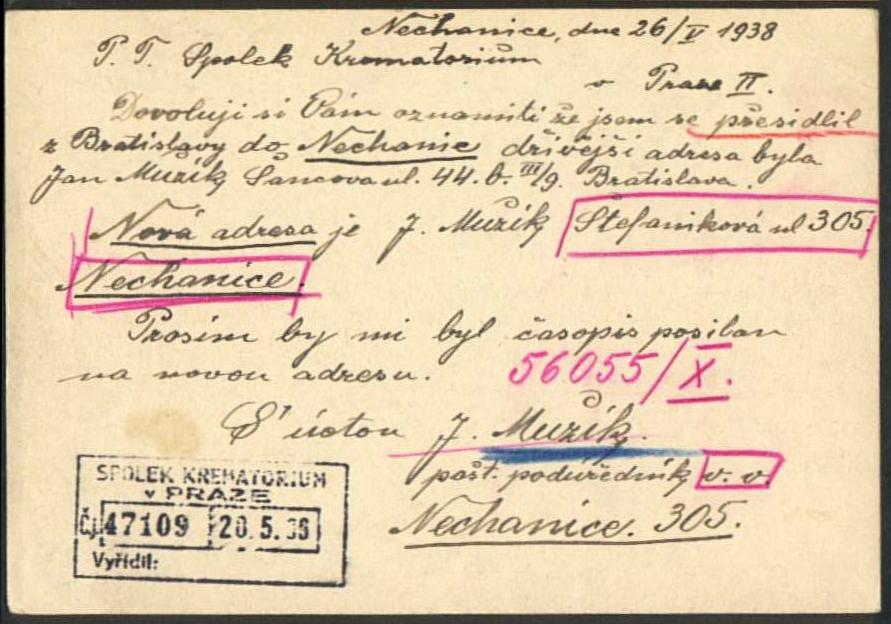 Nechanice, dne 26/V 1938
P. T. Spolek Krematorium
v Praze II.
Dovoluji si Vám oznámiti že jsem se přesídlil
z Bratislavy do Nechanic dřívější adresa byla
Jan Muzík Šancova ul. 44. b. III/9. Bratislava.
Nová adresa je J. Muzík Štefaniková ul 305.
Nechanice.
Prosím by mi byl časopis posílan
na novou adresu.
56055/X.
S' úctou J. Muzík.
pošt. podúředník v. v.
Nechanice. 305.
SPOLEK KREMATORIUM
v PRAZE
Čj. 47109 20.5.38
Vyřídil: